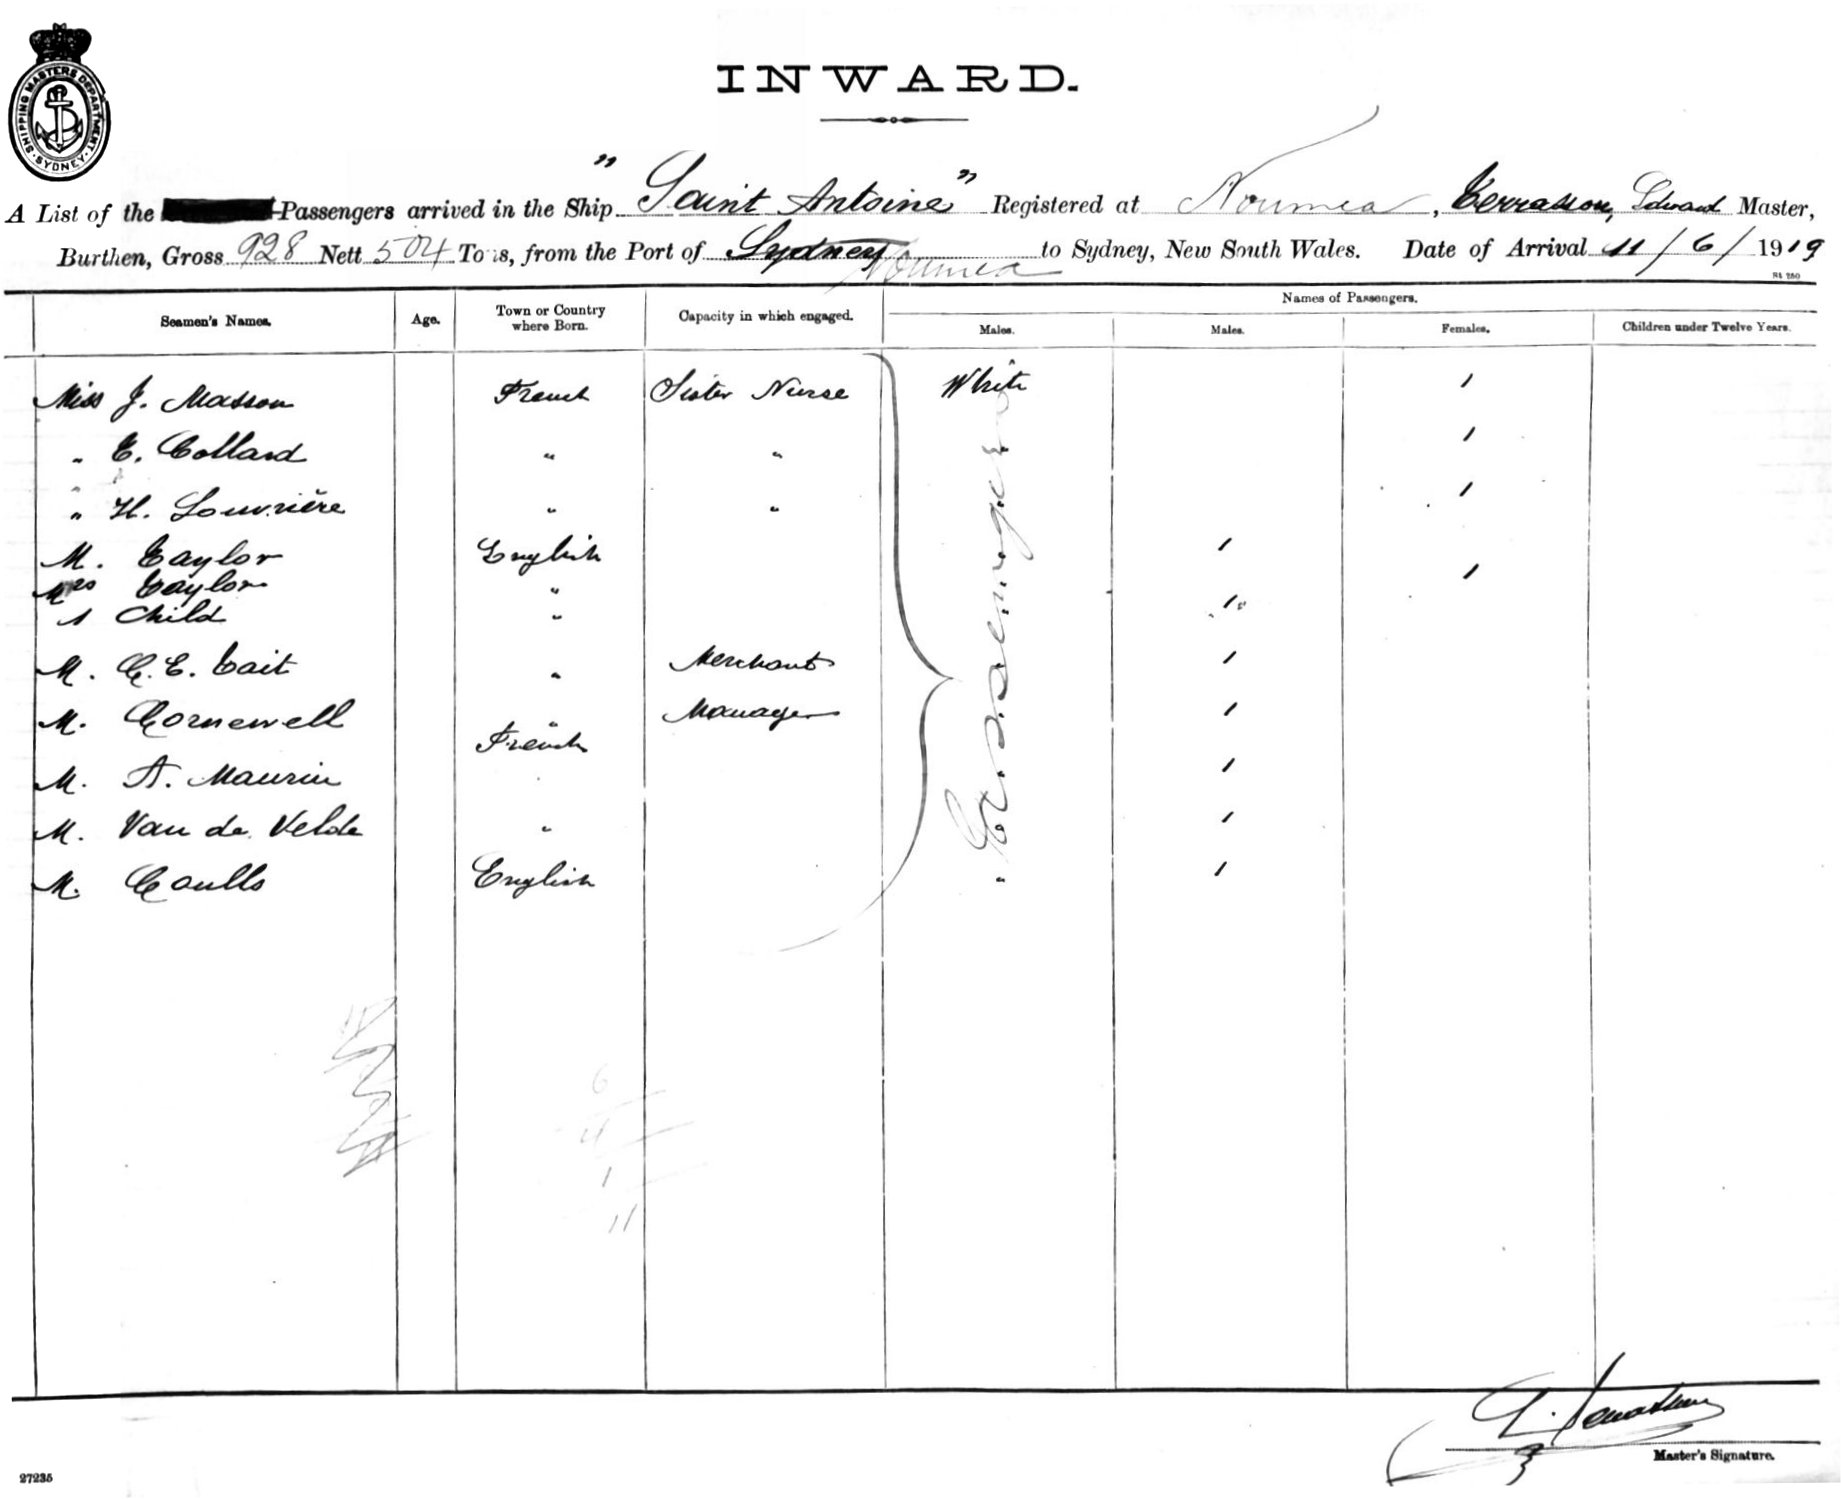 SHIPPING MASTERS DEPARTMENT
SYDNEY
INWARD.
A List of the Passengers arrived in the Ship "Saint Antoine" Registered at Noumea, Terrasson, Edward Master,
Burthen, Gross 928 Nett 504 Tons, from the Port of Sydney Noumea to Sydney, New South Wales. Date of Arrival 11/6/1919
Seamen's Names. Age. Town or Country where Born. Capacity in which engaged. Names of Passengers.
Males. Males. Females. Children under Twelve Years.
Miss J. Masson French Sister Nurse White 1
" E. Collard " " 1
" H. Louvrière " " 1
M. Taylor English 1
Mrs Taylor " 1
1 Child " 1
M. C. E. Tait " Merchant 1
M. Cornewell " Manager 1
French
M. A. Maurin 1
M. Van de Velde " 1
M. Coulls English " 1
Passengers
6
4
1
11
Master's Signature.
27235